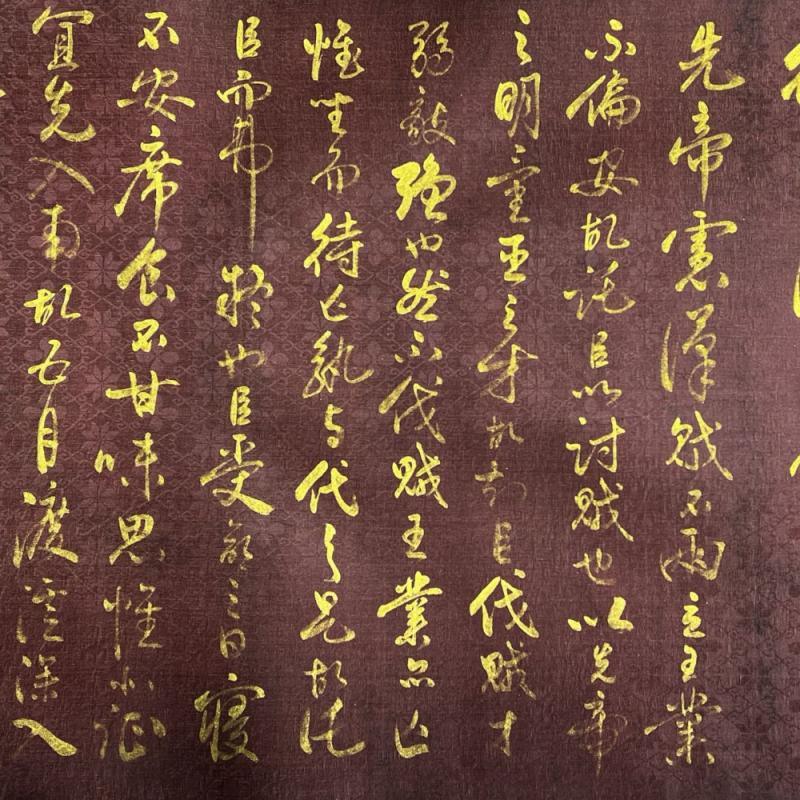 先帝慮漢賊不兩立王業
不偏安故託臣以討賊也以先帝
之明量臣之才故知臣伐賊才
弱敵強也然不伐賊王業亦亡
惟坐而待亡孰與伐之是故託
臣而弗疑也臣受命之日寢
不安席食不甘味思惟北征
宜先入南故五月渡瀘深入